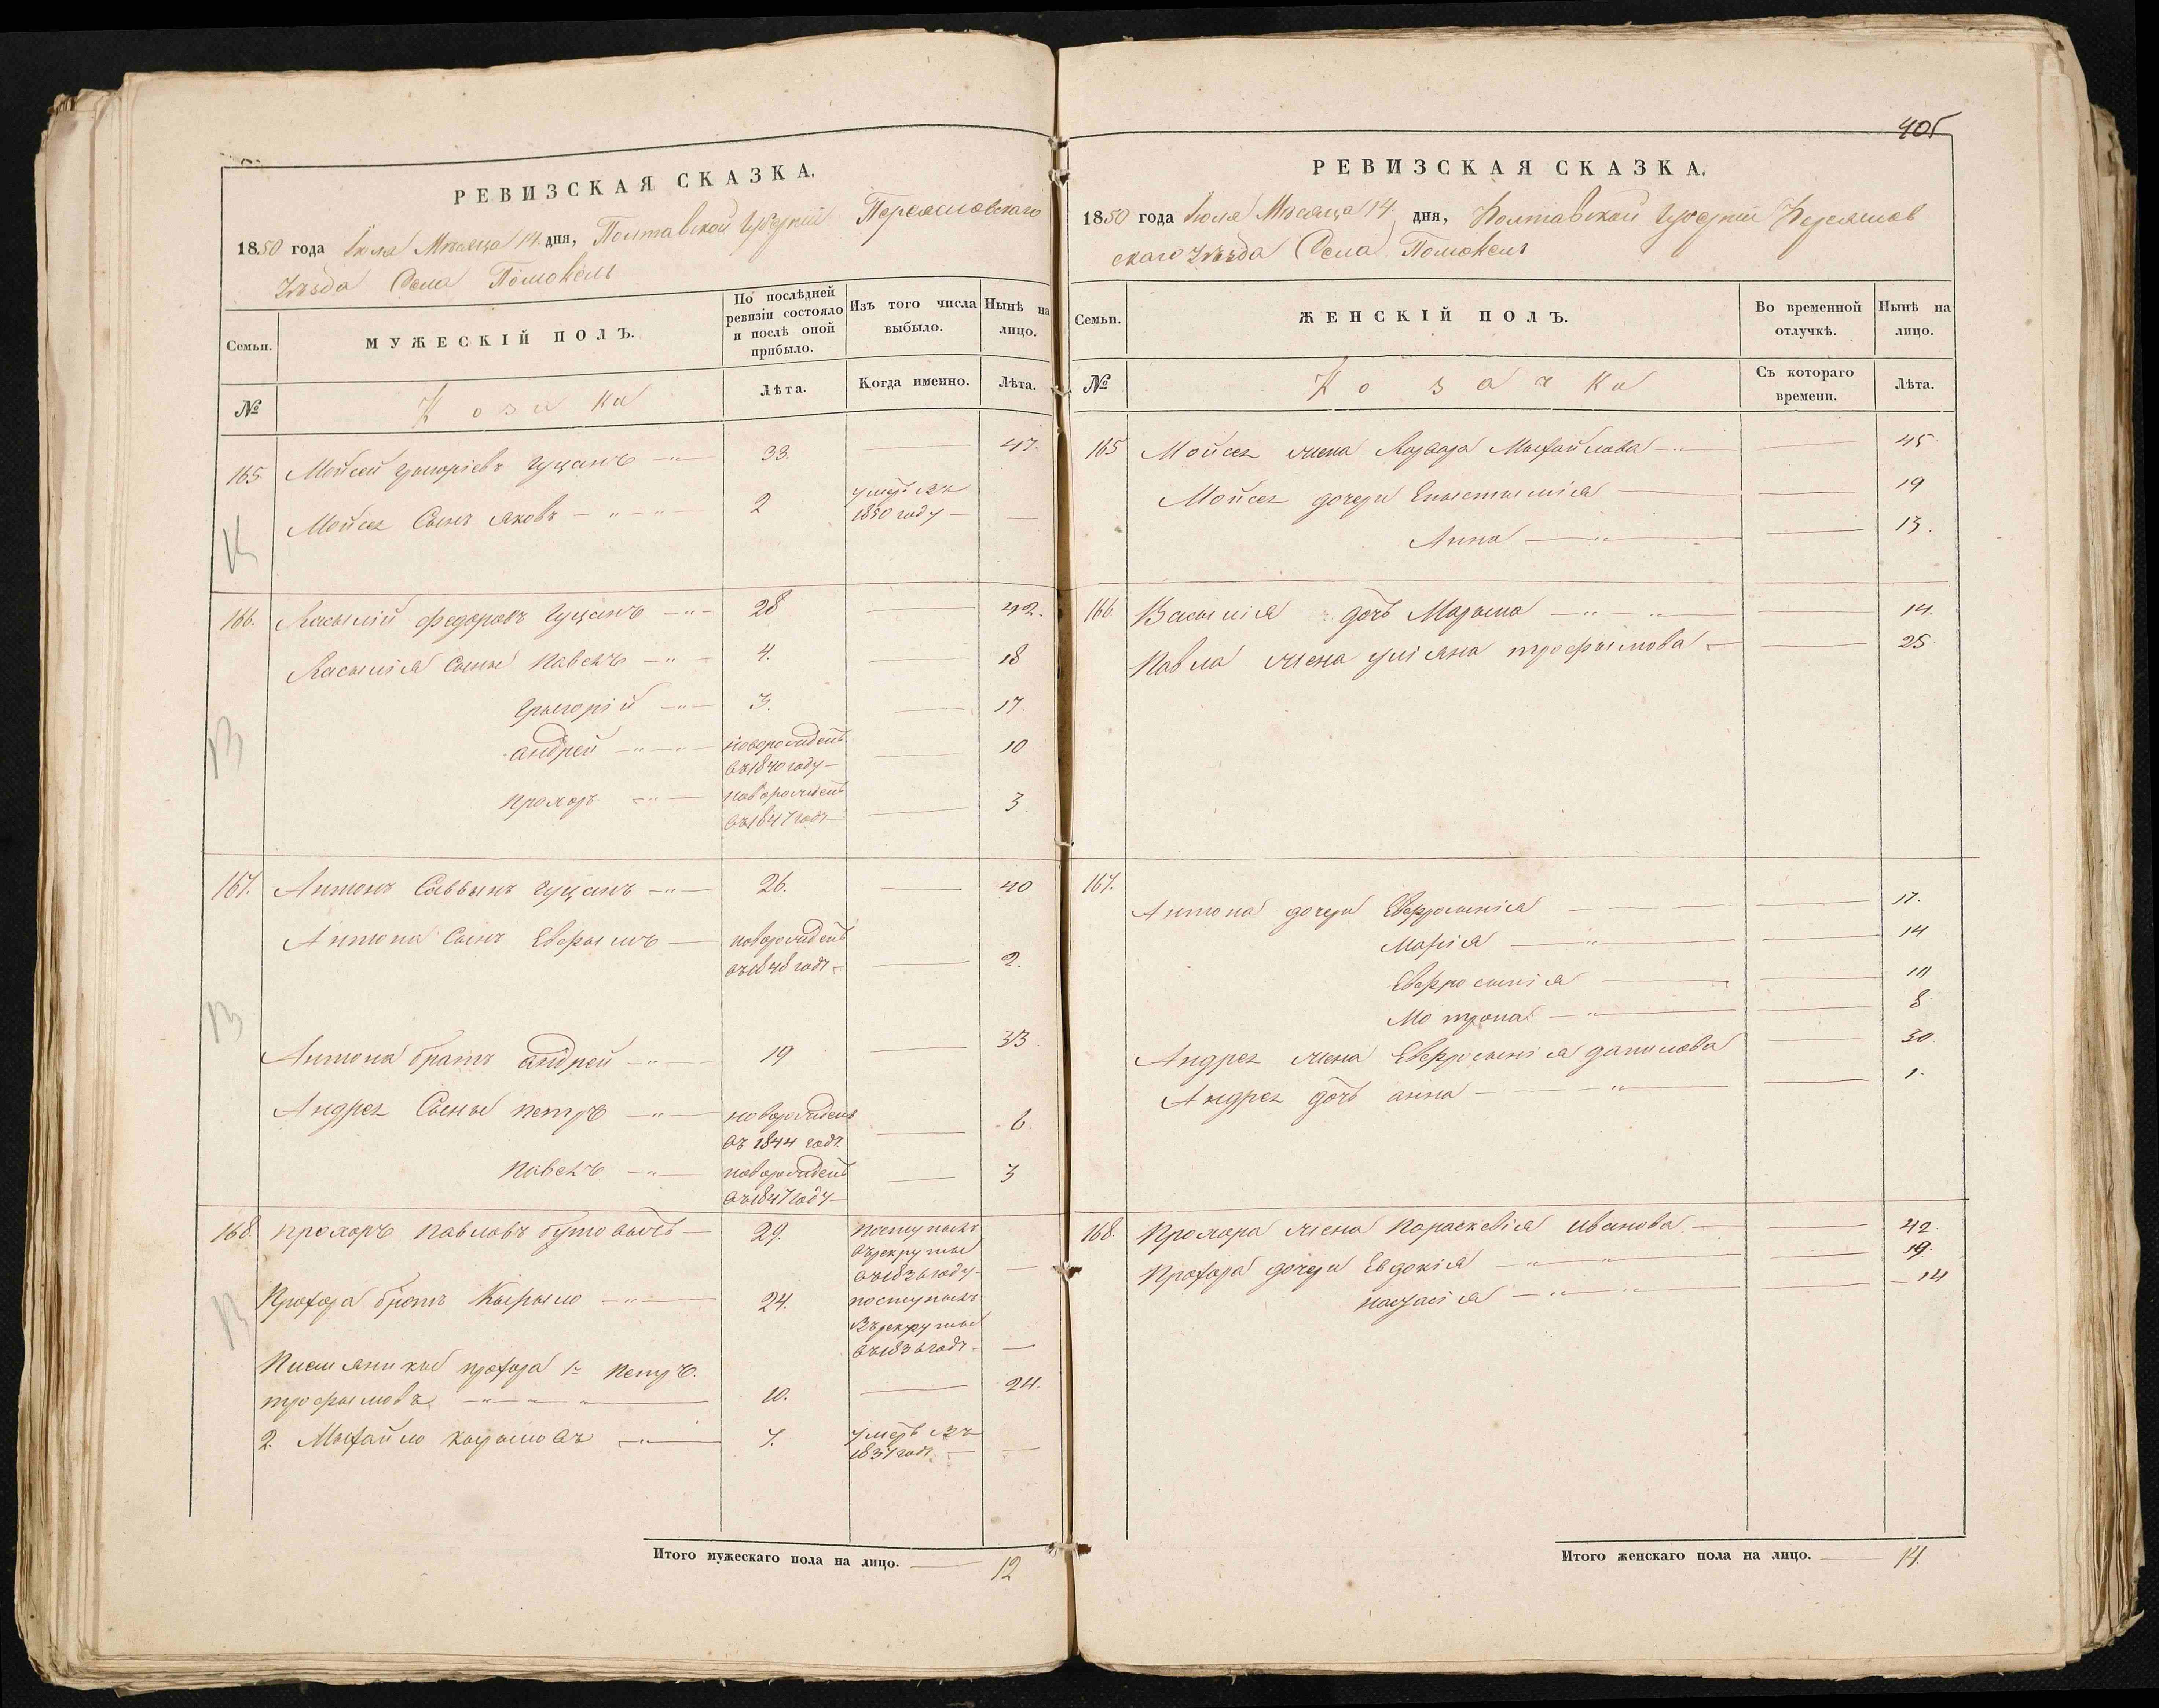 РЕВИЗСКАЯ СКАЗКА.
1850 года Іюля Мѣсяца 14 дня, Полтавской Губерніи Переясловскаго
Уѣзда Села Помокель
Семьи.
МУЖЕСКІЙ ПОЛЪ.
По послѣдней ревизіи состояло и послѣ оной прибыло.
Изъ того числа выбыло.
Нынѣ на лицо.
№
Козаки
Лѣта.
Когда именно.
Лѣта.
165 Мойсей Григоріевъ Гуцанъ 33. 47.
Мойсея Сынъ Яковъ 2 умеръ въ
1850 году
166. Василій Федоровъ Гуцанъ 28 42.
Василія Сыны Павелъ 4. 18
Григорій 3. 17.
Андрей новорожденъ 10
въ 1840 году
Прохоръ новорожденъ 3
въ 1847 годѣ
167. Антонъ Саввинъ Гуцанъ 26. 40
Антона Сынъ новорожденъ
въ 1848 годѣ 2.
Антона братъ андрей 19 33
Андрея Сыны петръ новорожденъ 6
въ 1844 годѣ
Павелъ новорожденъ 3
въ 1847 году
168. Прохоръ Павловъ 29. поступилъ
въ рекруты
въ 1836 году
Прохора братъ Кырыло 24. поступилъ
въ рекруты
въ 1836 годѣ
Племяники прохора 1е Петръ
трофымовъ 10. 24.
2. Мыхайло Кырыловъ 7. умеръ въ
1837 годѣ
Итого мужескаго пола на лицо. 12
405
РЕВИЗСКАЯ СКАЗКА.
1850 года Іюля Мѣсяца 14 дня, Полтавской Губерніи Переяслов
скаго Уѣзда Села Помокель
Семьи.
ЖЕНСКІЙ ПОЛЪ.
Во временной отлучкѣ.
Нынѣ на лицо.
№
Козачки
Съ котораго времени.
Лѣта.
165 Мойсея жена Варвара Мыхайлова 45
Мойсея дочери 19
Анна 13.
166 Василія дочь 14.
Павла жена уліяна трофымова 25
167.
Антона дочери Евфросинія 17.
Марія 14
Евфросинія 10
Мотрона 8
Андрея жена Евфросинія данилова 30.
Андрея дочь анна 1.
168. Прохора жена Параскевія Иванова 42
Прохора дочери Евдокія 19.
14
Итого женскаго пола на лицо. 14.